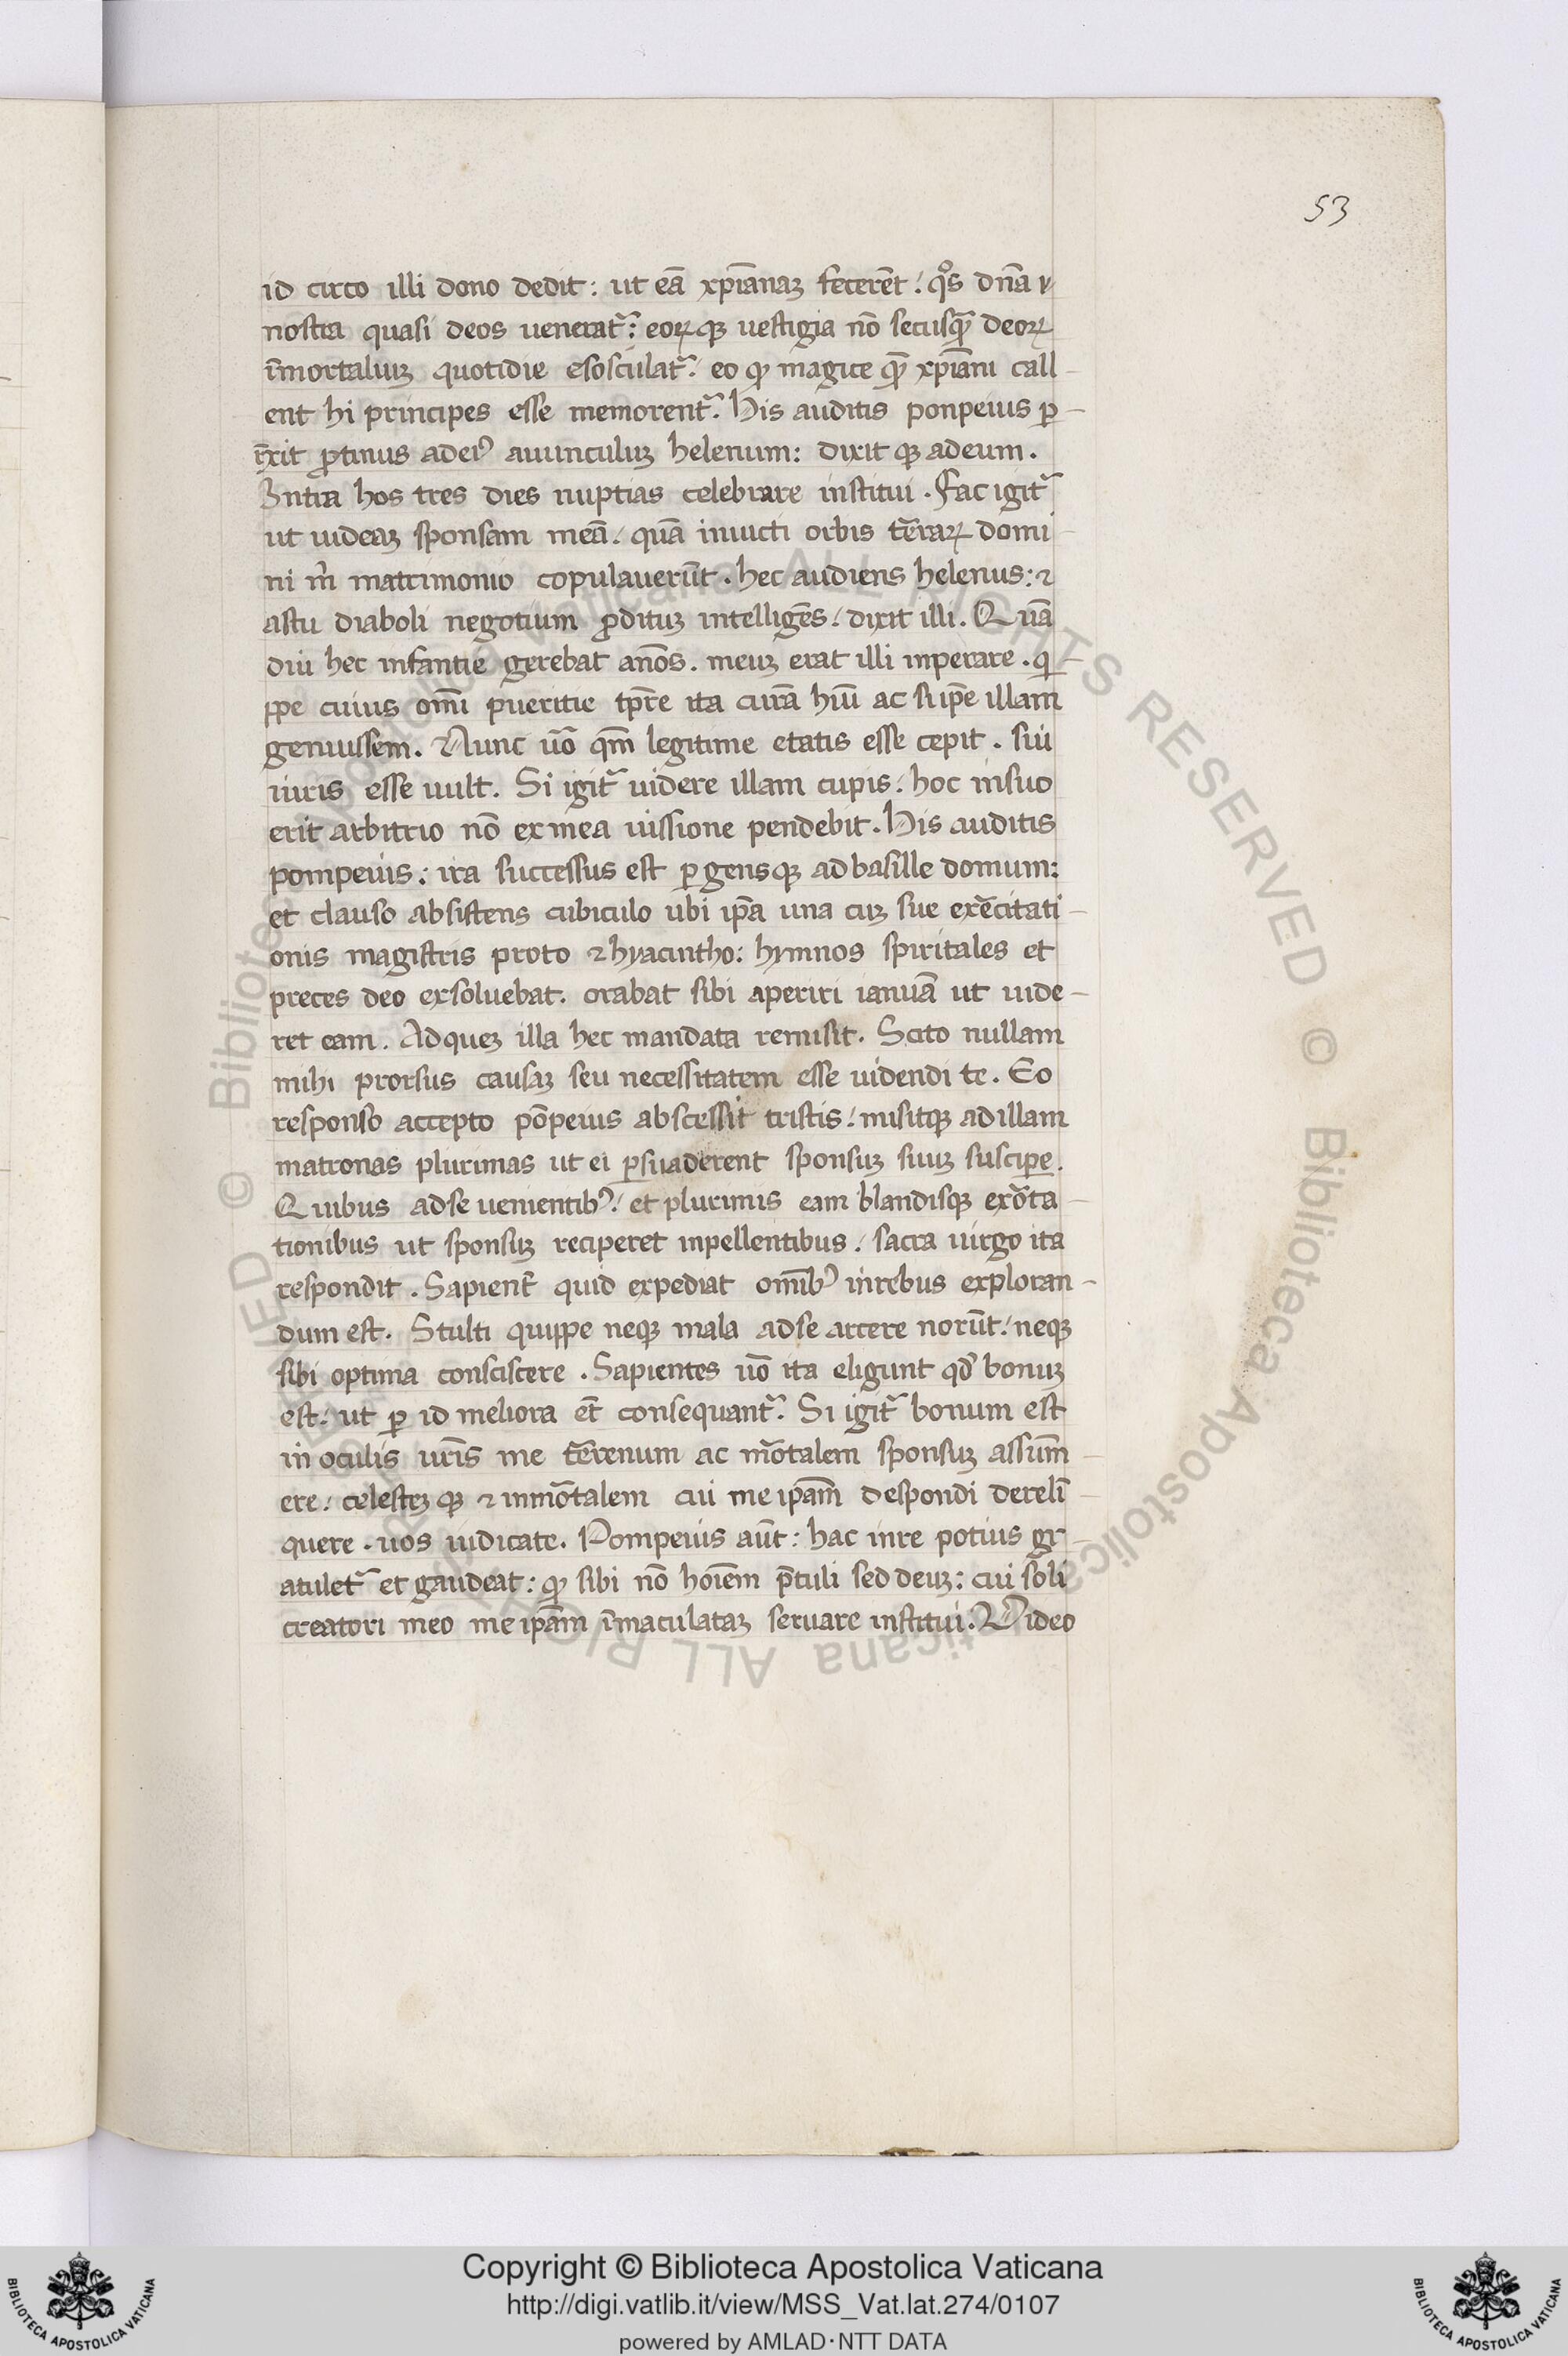 53
id circo illi dono dedit: ut eā xp̄ianaꝫ fecerēt: qͦs dn̄a
nostra quasi deos ueneratᷣ: eoꝝ qꝫ uestigia nō secusqᷓ deoꝝ
īmortaliuꝫ quotidie esosculatᷣ. eo ꝙ magice qᷓ xp̄iani call
ent hi principes esse memorentᷣ. His auditis ponpeius ꝑ-
rexit ꝓtinus adeiꝰ auunculuꝫ helenum: dixit qꝫ adeum.
Intra hos tres dies nuptias celebrare institui. Fac igitᷣ
ut uideaꝫ sponsam meā. quā inuicti orbis terraꝝ domi
ni m̄ matrimonio copulauerūt. hec audiens helenus: ⁊
astu diaboli negotium ꝓdituꝫ intelligēs. dixit illi. Quā
diu hec infantie gerebat an̄os. meuꝫ erat illi inperare. q-
ppe cuius om̄i pueritie tp̄re ita curā hiū ac suip̄e illam
genuissem. Nunc u̅o qm̄ legitime etatis esse cepit. sui
iuris esse uult. Si igitᷣ uidere illam cupis: hoc insuo
erit arbitrio nō exmea iussione pendebit. His auditis
pompeius: ira successus est ꝑgensqꝫ adbasille domum:
et clauso absistens cubiculo ubi ip̄a una cuꝫ sue exercitati-
onis magistris proto ⁊ hyacintho: hymnos spiritales et
preces deo exsoluebat. orabat sibi aperiri ianuā ut uide-
ret eam. Adqueꝫ illa hec mandata remisit. Scito nullam
mihi prorsus causaꝫ seu necessitatem esse uidendi te. Eo
responso accepto pōpeius abscessit tristis: misitqꝫ adillam
matronas plurimas ut ei ꝑsuaderent sponsuꝫ suuꝫ suscipe.
Quibus adse uenientibꝰ: et plurimis eam blandisqꝫ exōrta-
tionibus ut sponsuꝫ reciperet inpellentibus. sacra uirgo ita
respondit. Sapient̄ quid expediat om̄ibꝰ inrebus exploran-
dum est. Stulti quippe neqꝫ mala adse arcere norūt. neqꝫ
sibi optima consciscere. Sapientes u̅o ita eligunt qd̄ bonuꝫ
est. ut ꝑ id meliora et̄ consequantᷣ. Si igitᷣ bonum est
in oculis ur̄is me terrenum ac mōrtalem sponsuꝫ assum̄-
ere. celesteꝫ qꝫ ⁊ inmōrtalem cui me ip̄am despondi derelī-
quere. uos iudicate. Pompeius aūt: hac inre potius gr-
atuletᷣ et gaudeat: ꝙ sibi nō hoīem p̄tuli sed deuꝫ: cui soli
creatori meo me ip̄am īmaculataꝫ seruare institui. Video
Copyright © Biblioteca Apostolica Vaticana
http://digi.vatlib.it/view/MSS_Vat.lat.274/0107
powered by AMLAD·NTT DATA
BIBLIOTECA APOSTOLICA VATICANA
BIBLIOTECA APOSTOLICA VATICANA